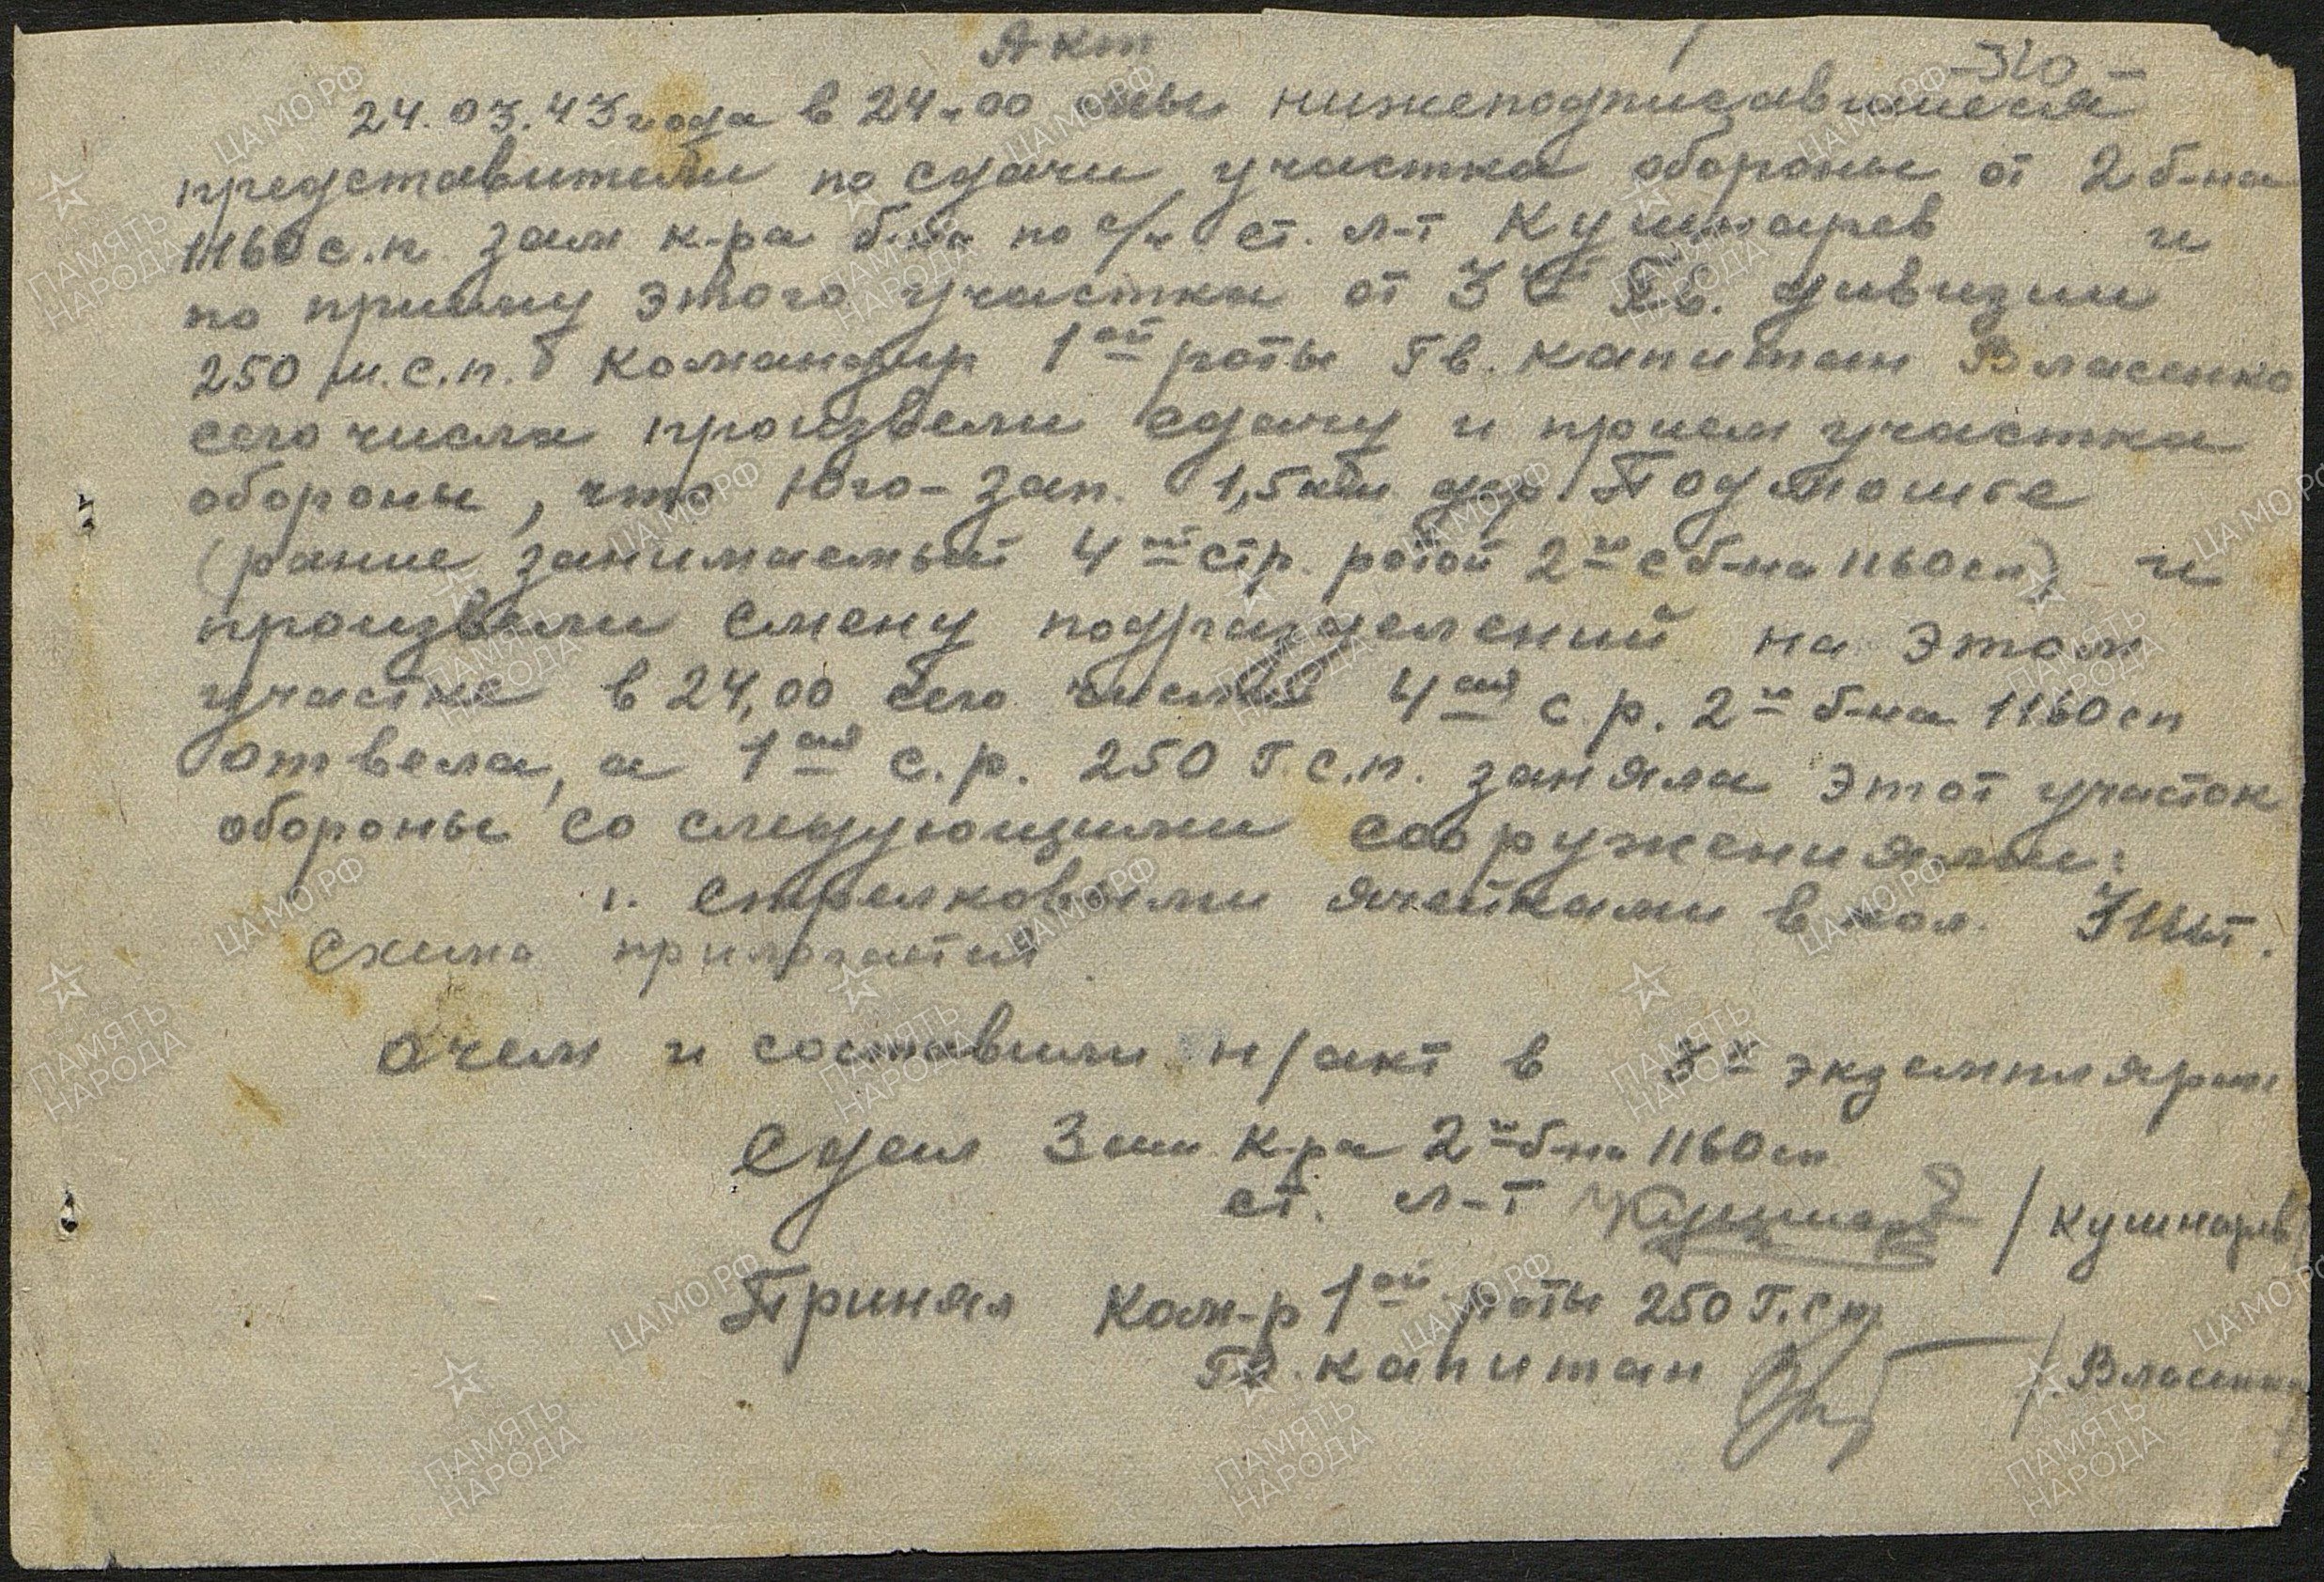 Акт
-310-
24.03.43 года в 24.00 мы нижеподписавшиеся
представители по сдачи участка обороны от 2 б-на
1160 с.п. зам к-ра б-на по с/ч ст. л-т Кушнарев и
по приему этого участка от 3 й Гв. дивизии
250 с.п. командир 1ой роты Гв. капитан Власенко
сего числа произвели сдачу и прием участка
обороны, что Юго-зап. 1,5 км дер Подмошье
(рание занимаемый 4ой стр. ротой 2го с б-на 1160 сп) и
произвели смену подразделений на этом
участке в 24,00 сего числа 4ая с.р. 2го б-на 1160 сп
отвела, а 1ая с.р. 250 Г.С.п. заняла этот участок
обороны со следующими сооружениями:
1. стрелковыми ячейками в кол. шт.
Схема прилогается
очем и составили н/акт в 3х экземплярах
Сдал Зам. К-ра 2го б-на 1160 сп
ст. л-т Кушнарев / Кушнарев
Принял Ком-р 1ой роты 250 Г.С.п.
Гв. капитан / Власенко
ЦАМО.РФ
ПАМЯТЬ
НАРОДА